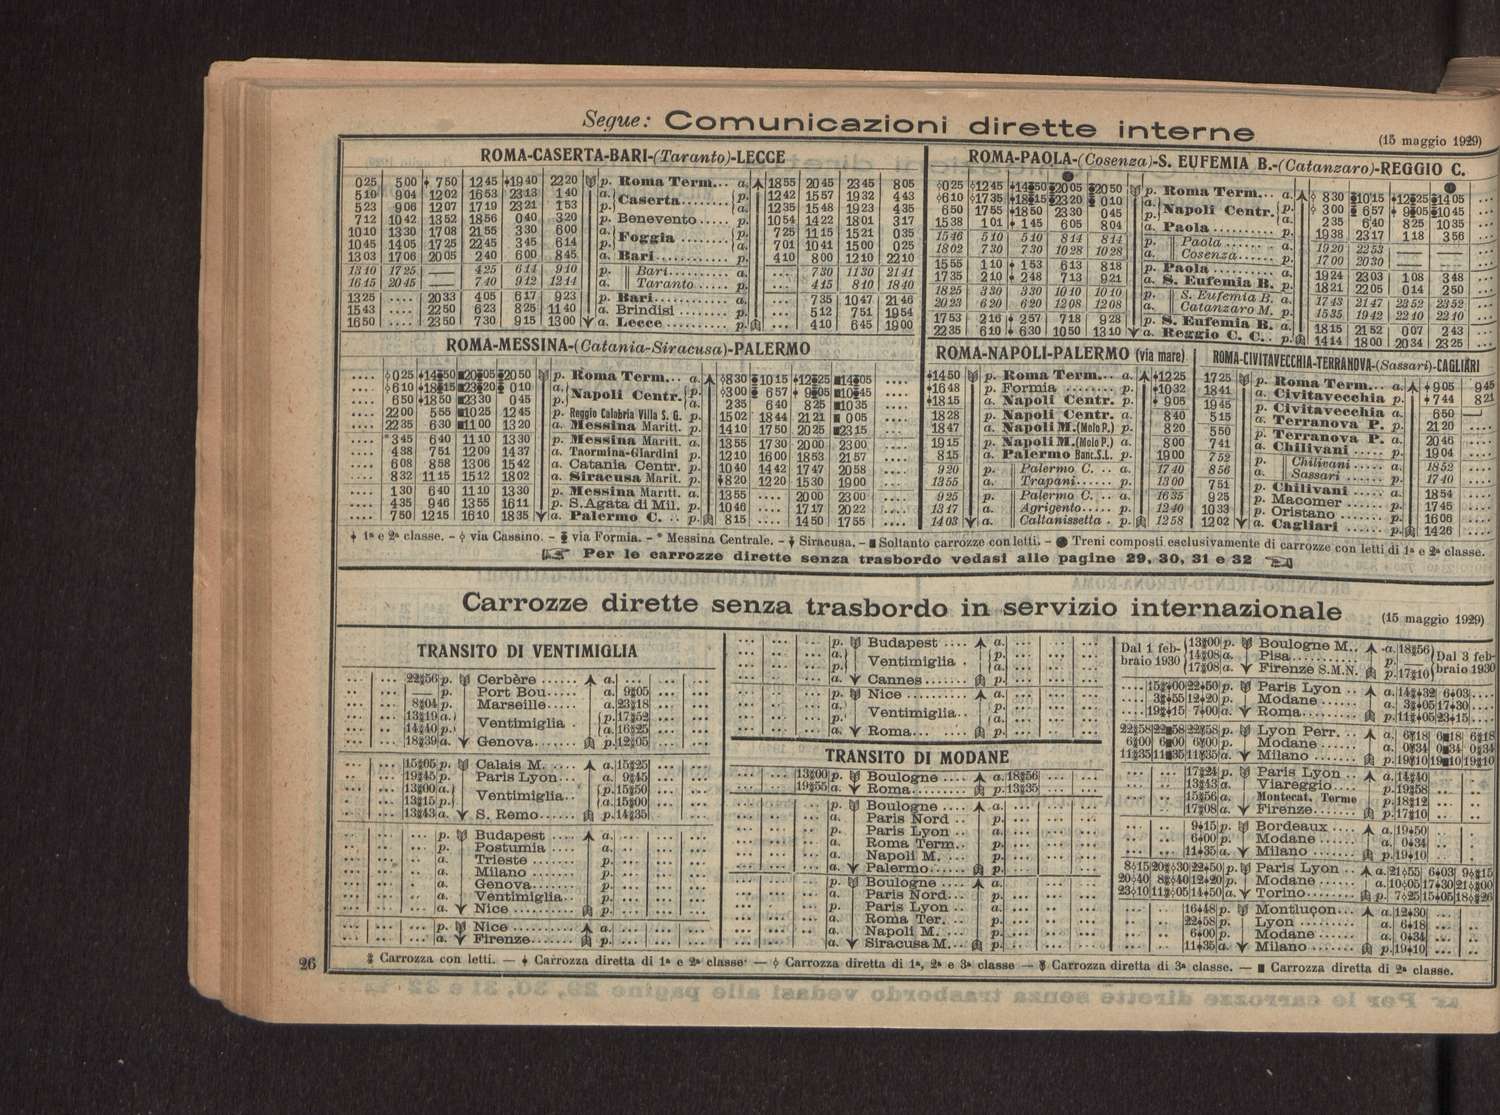 Segue: Comunicazioni dirette interne (15 maggio 1929)
ROMA-CASERTA-BARI-(Taranto)-LECCE
0 25 5 00 7 50 12 45 19 40 22 20 p. Roma Term... a. 18 55 20 45 23 45 8 05
5 10 9 04 12 02 16 53 23 13 1 40 a. Caserta p. 12 42 15 57 19 32 4 43
5 23 9 06 12 07 17 19 23 21 1 53 p. a. 12 35 15 48 19 23 4 35
7 12 10 42 13 52 18 56 0 40 3 20 p. Benevento p. 10 54 14 22 18 01 3 17
10 10 13 30 17 08 21 55 3 30 6 00 a. Foggia p. 7 25 11 15 15 21 0 35
10 45 14 05 17 25 22 45 3 45 6 14 p. a. 7 01 10 41 15 00 0 25
13 03 17 06 20 05 2 40 6 00 8 45 a. Bari p. 4 10 8 00 12 10 22 10
13 10 17 25 — 4 25 6 44 9 10 p. Bari a. ... 7 30 11 30 21 41
16 15 20 45 — 7 40 9 42 12 44 a. Taranto p. ... 4 45 8 40 18 40
13 25 .... 20 33 4 05 6 17 9 23 p. Bari a. ... 7 35 10 47 21 46
15 43 .... 22 50 6 23 8 25 11 40 a. Brindisi p. ... 5 12 7 51 19 54
16 50 .... 23 50 7 30 9 15 13 00 a. Lecce p. ... 4 10 6 45 19 00
ROMA-PAOLA-(Cosenza)-S. EUFEMIA B.-(Catanzaro)-REGGIO C.
0 25 12 45 14 50 20 05 20 50 p. Roma Term... a. 8 30 10 15 12 25 14 05 ...
6 10 17 35 18 15 23 20 0 10 a. Napoli Centr. p. 3 00 6 57 9 05 10 45 ...
6 50 17 55 18 50 23 30 0 45 p. a. 2 35 6 40 8 25 10 35 ...
15 38 1 01 1 45 6 05 8 04 a. Paola p. 19 38 23 17 1 18 3 56 ...
15 46 5 10 5 10 8 44 8 44 p. Paola a. 19 20 22 53 — — ...
18 02 7 30 7 30 10 28 10 28 a. Cosenza p. 17 00 20 30 — — ...
15 55 1 10 1 53 6 13 8 18 p. Paola a. 19 24 23 03 1 08 3 48 ...
17 35 2 10 2 48 7 13 9 21 a. S. Eufemia B. p. 18 21 22 05 0 14 2 50 ...
18 25 3 30 3 30 10 10 10 10 p. S. Eufemia B. a. 17 43 21 47 23 52 23 52 ...
20 23 6 20 6 20 12 08 12 08 a. Catanzaro M. p. 15 35 19 42 22 10 22 10 ...
17 53 2 16 2 57 7 18 9 28 p. S. Eufemia B. a. 18 15 21 52 0 07 2 43 ...
22 35 6 10 6 30 10 50 13 10 a. Reggio C. C. p. 14 14 18 00 20 34 23 25 ...
ROMA-MESSINA-(Catania-Siracusa)-PALERMO
.... 0 25 14 50 20 05 20 50 p. Roma Term... a. 8 30 10 15 12 25 14 05 ....
.... 6 10 18 15 23 20 0 10 a. Napoli Centr. p. 3 00 6 57 9 05 10 45 ....
.... 6 50 18 50 23 30 0 45 p. a. 2 35 6 40 8 25 10 35 ....
.... 22 00 5 55 10 25 12 45 p. Reggio Calabria Villa S. G. p. 15 02 18 44 21 21 0 05 ....
.... 22 35 6 30 11 00 13 20 a. Messina Maritt. p. 14 10 17 50 20 25 23 15 ....
.... * 3 45 6 40 11 10 13 30 p. Messina Maritt. a. 13 55 17 30 20 00 23 00 ....
.... 4 38 7 51 12 09 14 37 a. Taormina-Giardini p. 12 10 16 00 18 53 21 57 ....
.... 6 08 8 58 13 06 15 42 a. Catania Centr. p. 10 40 14 42 17 47 20 58 ....
.... 8 32 11 15 15 12 18 02 a. Siracusa Marit. p. 8 20 12 20 15 30 19 00 ....
.... 1 30 6 40 11 10 13 30 p. Messina Maritt. a. 13 55 .... 20 00 23 00 ....
.... 4 35 9 46 13 55 16 11 p. S. Agata di Mil. p. 10 46 .... 17 17 20 22 ....
.... 7 50 12 15 16 10 18 35 a. Palermo C. .. p. 8 15 .... 14 50 17 55 ....
ROMA-NAPOLI-PALERMO (via mare)
14 50 p. Roma Term... a. 12 25
16 48 p. Formia p. 10 32
18 15 a. Napoli Centr. p. 9 05
18 28 p. Napoli Centr. a. 8 40
18 47 a. Napoli M. (Molo P.) p. 8 20
19 15 p. Napoli M. (Molo P.) a. 8 00
8 15 a. Palermo Banc. S.L. p. 19 00
9 20 p. Palermo C. .. a. 17 40
13 55 a. Trapani p. 13 00
9 25 p. Palermo C. .. a. 16 35
13 17 a. Agrigento p. 12 40
14 03 a. Caltanissetta . p. 12 58
ROMA-CIVITAVECCHIA-TERRANOVA-(Sassari)-CAGLIARI
17 25 p. Roma Term... a. 9 05 9 45
18 41 a. Civitavecchia p. 7 44 8 21
19 45 p. Civitavecchia a. 6 50 —
5 50 a. Terranova P. p. 21 20 ....
p. Terranova P. a. 20 46 ....
7 41 a. Chilivani p. 19 04 ....
7 52 p. Chilivani a. 18 52 ....
8 56 a. Sassari p. 17 40 ....
7 51 p. Chilivani a. 18 54 ....
9 25 p. Macomer p. 17 45 ....
10 33 p. Oristano p. 16 06 ....
12 02 a. Cagliari p. 14 26 ....
1ª e 2ª classe. – via Cassino. – via Formia. – * Messina Centrale. – Siracusa. – ■ Soltanto carrozze con letti. – ● Treni composti esclusivamente di carrozze con letti di 1ª e 2ª classe.
Per le carrozze dirette senza trasbordo vedasi alle pagine 29, 30, 31 e 32
Carrozze dirette senza trasbordo in servizio internazionale (15 maggio 1929)
TRANSITO DI VENTIMIGLIA
22 56 p. Cerbère a. ...
— p. Port Bou a. 9 05
8 04 p. Marseille a. 23 18
13 19 a. Ventimiglia p. 17 52
14 40 p. a. 16 25
18 39 a. Genova p. 12 05
15 05 p. Calais M. a. 15 25
19 45 p. Paris Lyon a. 9 45
13 00 a. Ventimiglia p. 15 50
13 15 p. a. 15 00
13 43 a. S. Remo p. 14 35
p. Budapest a.
p. Postumia a.
a. Trieste p.
a. Milano p.
a. Genova p.
a. Ventimiglia p.
a. Nice p.
p. Nice a.
a. Firenze p.
p. Budapest a.
a. Ventimiglia p.
p. a.
a. Cannes p.
p. Nice a.
a. Ventimiglia p.
p. a.
a. Roma p.
TRANSITO DI MODANE
13 00 p. Boulogne a. 18 56
19 55 a. Roma p. 13 35
p. Boulogne a.
a. Paris Nord p.
p. Paris Lyon a.
a. Roma Term. p.
a. Napoli M. p.
a. Palermo p.
p. Boulogne a.
a. Paris Nord p.
p. Paris Lyon a.
a. Roma Ter. p.
a. Napoli M. p.
a. Siracusa M. p.
Dal 1 febbraio 1930 13 00 p. Boulogne M. a. 18 56 Dal 3 febbraio 1930
14 08 a. Pisa p. —
17 08 a. Firenze S.M.N. p. 17 10
15 00 22 50 p. Paris Lyon a. 14 32 6 03 ....
3 55 12 20 p. Modane a. 3 05 17 30 ....
19 15 7 00 a. Roma p. 11 05 23 15 ....
22 58 22 58 22 58 p. Lyon Perr. a. 6 18 6 18 6 18
6 00 6 00 6 00 p. Modane a. 0 34 0 34 0 34
11 35 11 35 11 35 a. Milano p. 19 10 19 10 19 10
17 24 p. Paris Lyon a. 14 40
13 43 a. Viareggio p. 19 58
15 56 a. Montecat. Terme p. 18 12
17 08 a. Firenze p. 17 10
9 15 p. Bordeaux a. 19 50
6 00 p. Modane a. 0 34
11 35 a. Milano p. 19 10
8 15 20 30 22 50 p. Paris Lyon a. 21 55 6 03 9 15
20 40 8 40 12 20 p. Modane a. 10 05 17 30 21 00
23 10 11 05 14 50 a. Torino p. 7 25 15 05 18 26
16 48 p. Montluçon a. 12 30
22 58 p. Lyon a. 6 18
6 00 p. Modane a. 0 34
11 35 a. Milano p. 19 10
Carrozza con letti. — Carrozza diretta di 1ª e 2ª classe. — Carrozza diretta di 1ª, 2ª e 3ª classe — Carrozza diretta di 3ª classe. — ■ Carrozza diretta di 2ª classe.
26